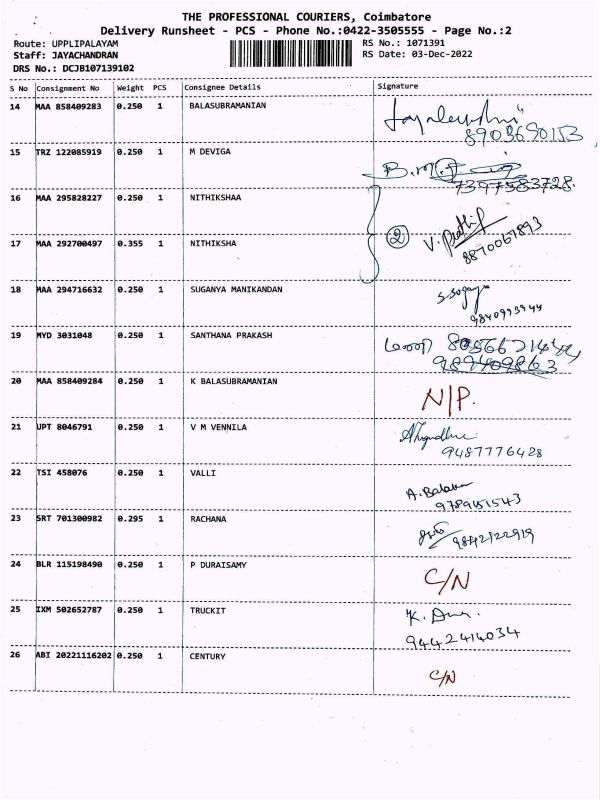 THE PROFESSIONAL COURIERS, Coimbatore
Delivery Runsheet - PCS - Phone No.:0422-3505555 - Page No.:2
Route: UPPLIPALAYAM RS No.: 1071391
Staff: JAYACHANDRAN RS Date: 03-Dec-2022
DRS No.: DCJB107139102
S No Consignment No Weight PCS Consignee Details Signature
14 MAA 858409283 0.250 1 BALASUBRAMANIAN
8903690153
15 TRZ 122085919 0.250 1 M DEVIGA
7397583728.
16 MAA 295828227 0.250 1 NITHIKSHAA
17 MAA 292700497 0.355 1 NITHIKSHA
2
8870067893
18 MAA 294716632 0.250 1 SUGANYA MANIKANDAN
S.Suganya
9840993944
19 MYD 3031048 0.250 1 SANTHANA PRAKASH
20 MAA 858409284 0.250 1 K BALASUBRAMANIAN
N/P.
21 UPT 8046791 0.250 1 V M VENNILA
9487776428
22 TSI 458076 0.250 1 VALLI
A.Balan
9789451543
23 SRT 701300982 0.295 1 RACHANA
9842122919
24 BLR 115198490 0.250 1 P DURAISAMY
C/N
25 IXM 502652787 0.250 1 TRUCKIT
9442414034
26 ABI 20221116202 0.250 1 CENTURY
C/N